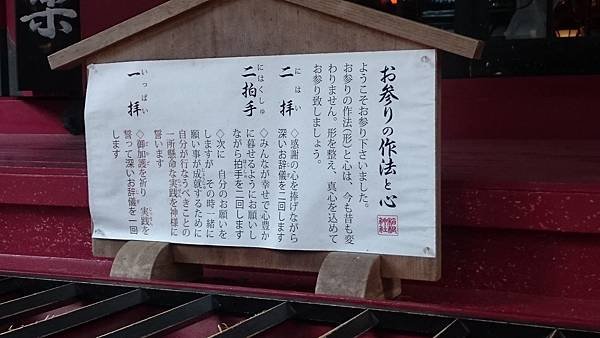 お参りの作法と心
ようこそお参り下さいました。
お参りの作法(形)と心は、今も昔も変
わりません。形を整え、真心を込めて
お参り致しましょう。
二拝
にはい
◇感謝の心を捧げながら
深いお辞儀を二回します
二拍手
にはくしゅ
◇みんなが幸せで心豊か
に暮せるようにお願いし
ながら拍手を二回します
◇次に 自分のお願いを
しますが、その時一緒に
願い事が成就するために
自分が行なうべきことの
一所懸命な実践を神様に
誓います
一拝
いっぱい
◇御加護を祈り 実践を
誓って深いお辞儀を一回
します
楽